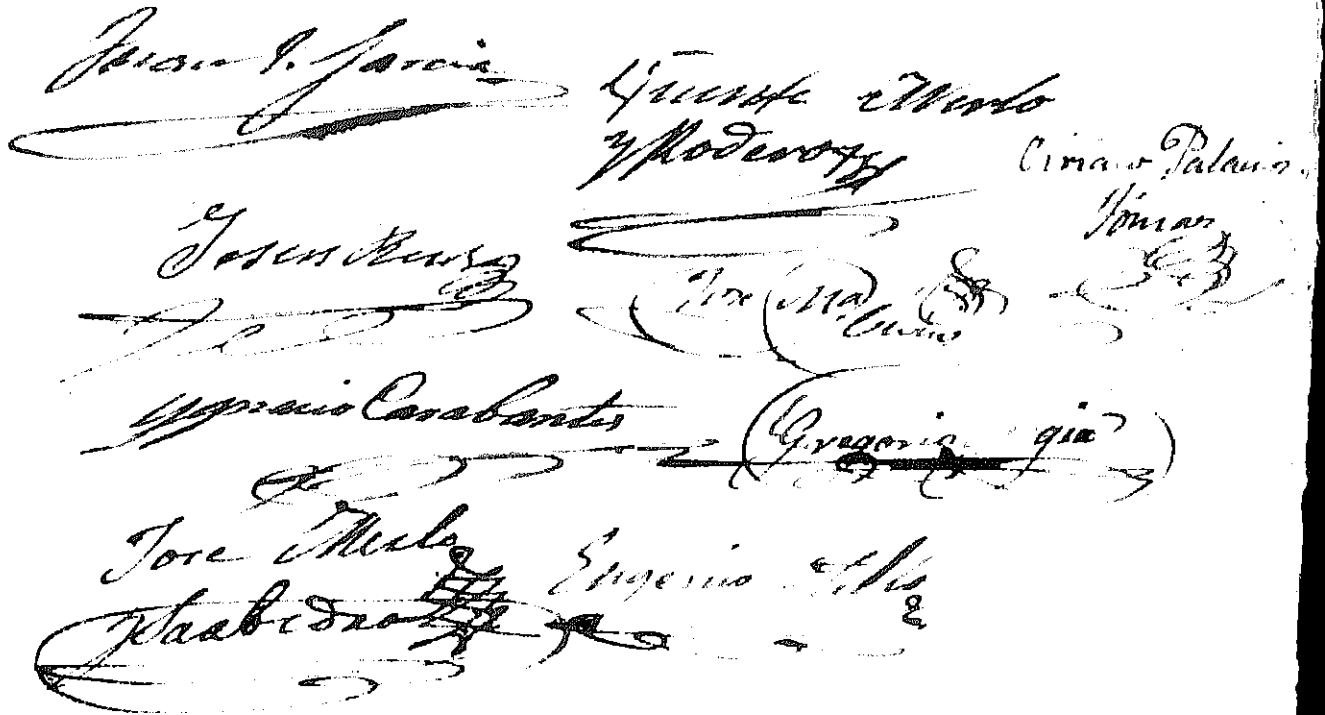 Juan P. Garcia
Vicente Merlo
y Rodero
Ciriaco Palacios
Tomas
Jesus
Jose Ma
Ygnacio Carabantes
Gregorio gia
Jose Merlo
y Saabedra
Eugenio